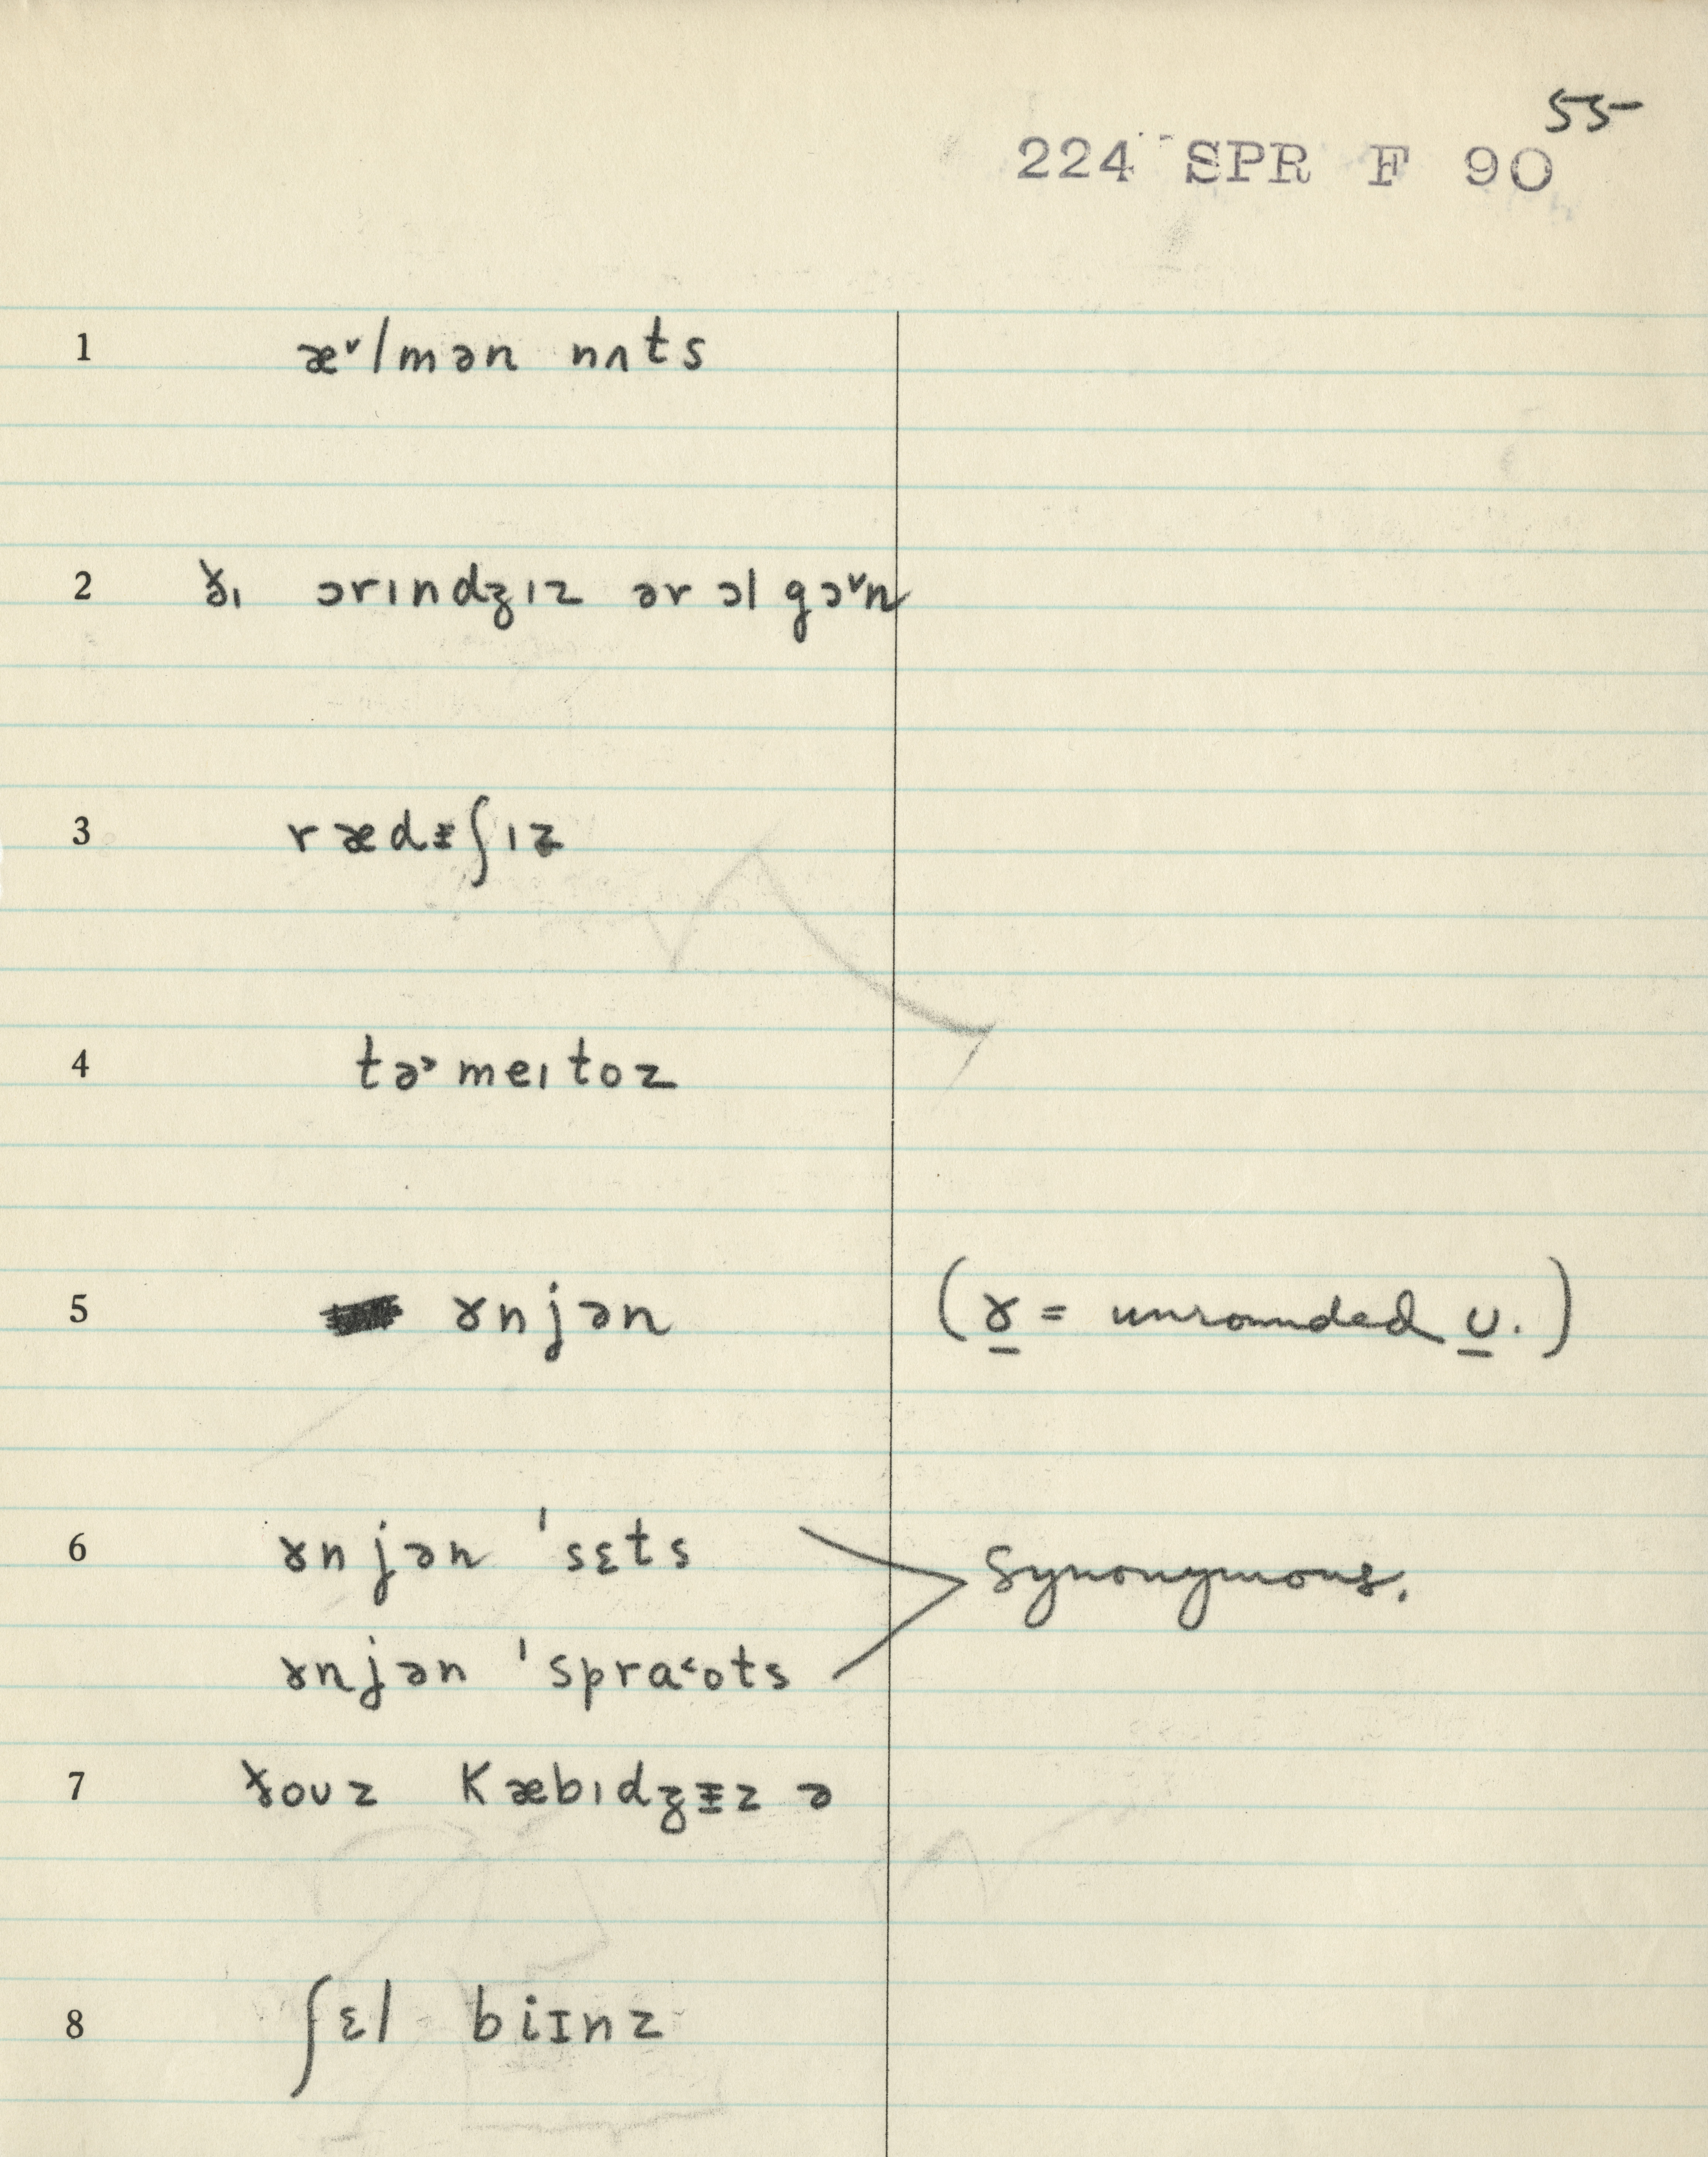 55
224 SPR F 90
1 æ˅lmən nʌts
2 ðɪ ɔrɪndʒɪz ər ɔl gɔ˅n
3 rædᵻʃɪz
4 tə˃meɪtoz
5 ɤnjən (ɤ = unrounded ʊ.)
6 ɤnjən 'sɛts
Synonymous.
ɤnjən 'spra˂ots
7 ðoʊz kæbɪdʒᵻz ə
8 ʃɛl biɪnz